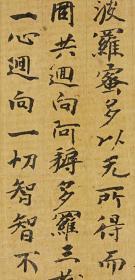 波羅蜜多以无所得而
同共迴向阿耨多羅三
一心迴向一切智智不